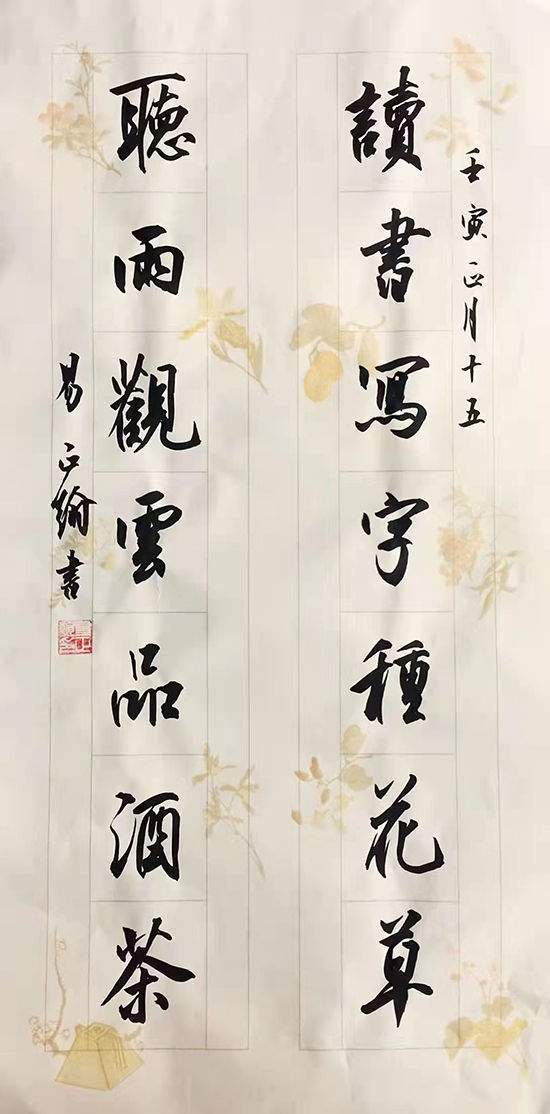 壬寅正月十五
讀書寫字種花草
聽雨觀雲品酒茶
易正綸書